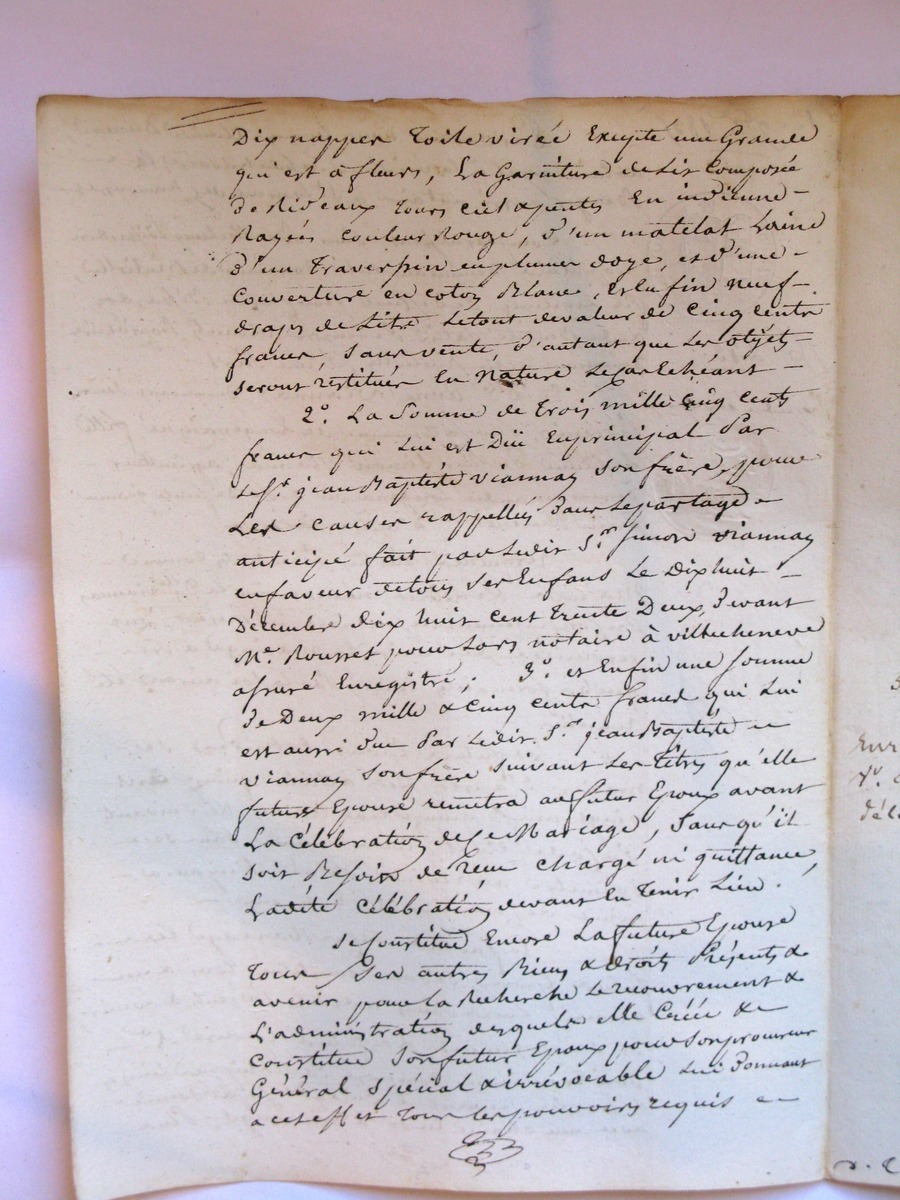 Dix nappes toile virée Excepté une Grande
qui est à fleurs, La Garniture de Lit Composée
de Rideaux tours ciel & pentes En indienne
Rayées Couleur Rouge, d'un matelat Laine
d'un traverssin en plumes d'oye, et d'une
Couverture en coton Blanc, Et Enfin neuf
draps de Lit, Le tout de valeur de Cinq cents
francs, sans vente, d'autant que Les objets
seront réstitués En Nature Le Cas Echéant
2° La Somme de trois mille Cinq cents
francs qui Lui est Düe En principal Par
Le Sr. jean Baptiste Viannay Son frère, pour
Les Causes rappellées Dans Le partage
anticipé fait par Ledit Sr. Simon Viannay
en faveur de tous Ses Enfans Le Dix huit
Décembre dix huit cent trente Deux, devant
Me. Rousset pour Lors notaire à villecheneve
assuré Enregistré; 3° et Enfin une Somme
de Deux mille & Cinq cents francs qui Lui
est aussi due Par Ledit Sr. jean Baptiste
Viannay Son frère suivant Les titres qu'elle
future Epouse remettra au futur Epoux avant
La Célébration de Ce Mariage, Sans qu'il
soit Besoin de reçu chargé ni quittance,
Ladite Célébration devant En tenir Lieu.
Se Constitue Encore La future Epouse
tous Ses autres Biens & droits Présents &
avenir pour La Recherche Le recouvrement &
L'administration desquels elle Créée &
Constitue Son futur Epoux pour Son procureur
Général Spécial & irrévocable Lui Donnant
a cet effet tous les pouvoirs requis
Enr
Vo. C
déc